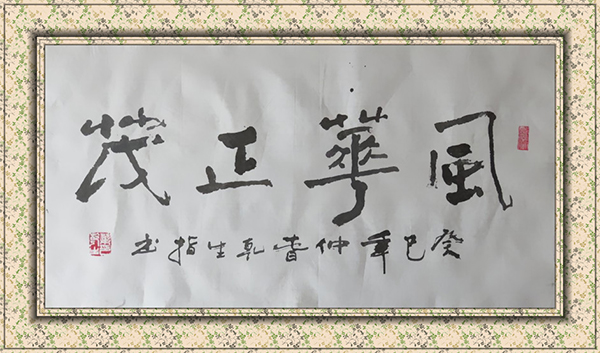 風華正茂
癸巳年仲春乾生指书